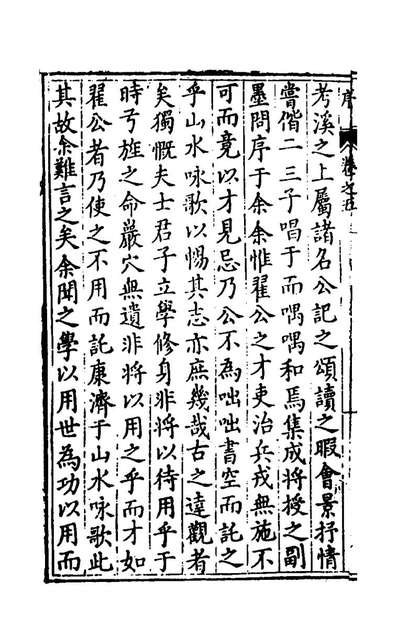 序 卷之五
考溪之上屬諸名公記之頌讀之暇會景抒情
嘗偕二三子唱于而喁喁和焉集成將授之副
墨問序于余余惟翟公之才吏治兵戎無施不
可而竟以才見忌乃公不為咄咄書空而託之
乎山水咏歌以惕其志亦庶幾哉古之達觀者
矣獨慨夫士君子立學修身非將以待用乎于
時弓旌之命巖穴無遺非將以用之乎而才如
翟公者乃使之不用而託康濟于山水咏歌此
其故余難言之矣余聞之學以用世為功以用而